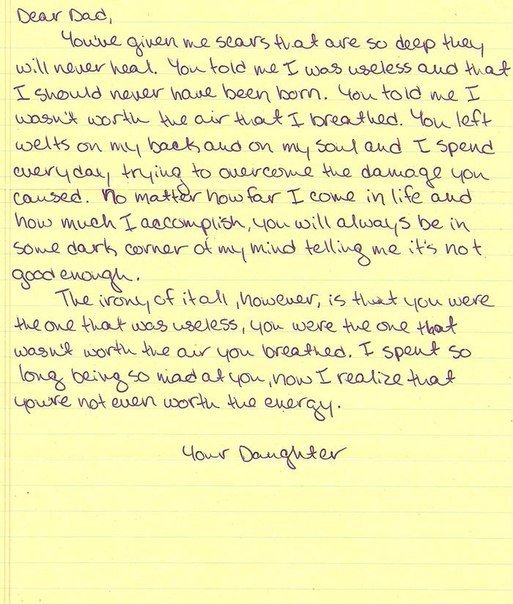 Dear Dad,
You've given me scars that are so deep they
will never heal. You told me I was useless and that
I should never have been born. You told me I
wasn't worth the air that I breathed. You left
welts on my back and on my soul and I spend
everyday trying to overcome the damage you
caused. No matter how far I come in life and
how much I accomplish, you will always be in
some dark corner of my mind telling me it's not
good enough.
The irony of it all, however, is that you were
the one that was useless, you were the one that
wasn't worth the air you breathed. I spent so
long being so mad at you, now I realize that
you're not even worth the energy.
Your Daughter